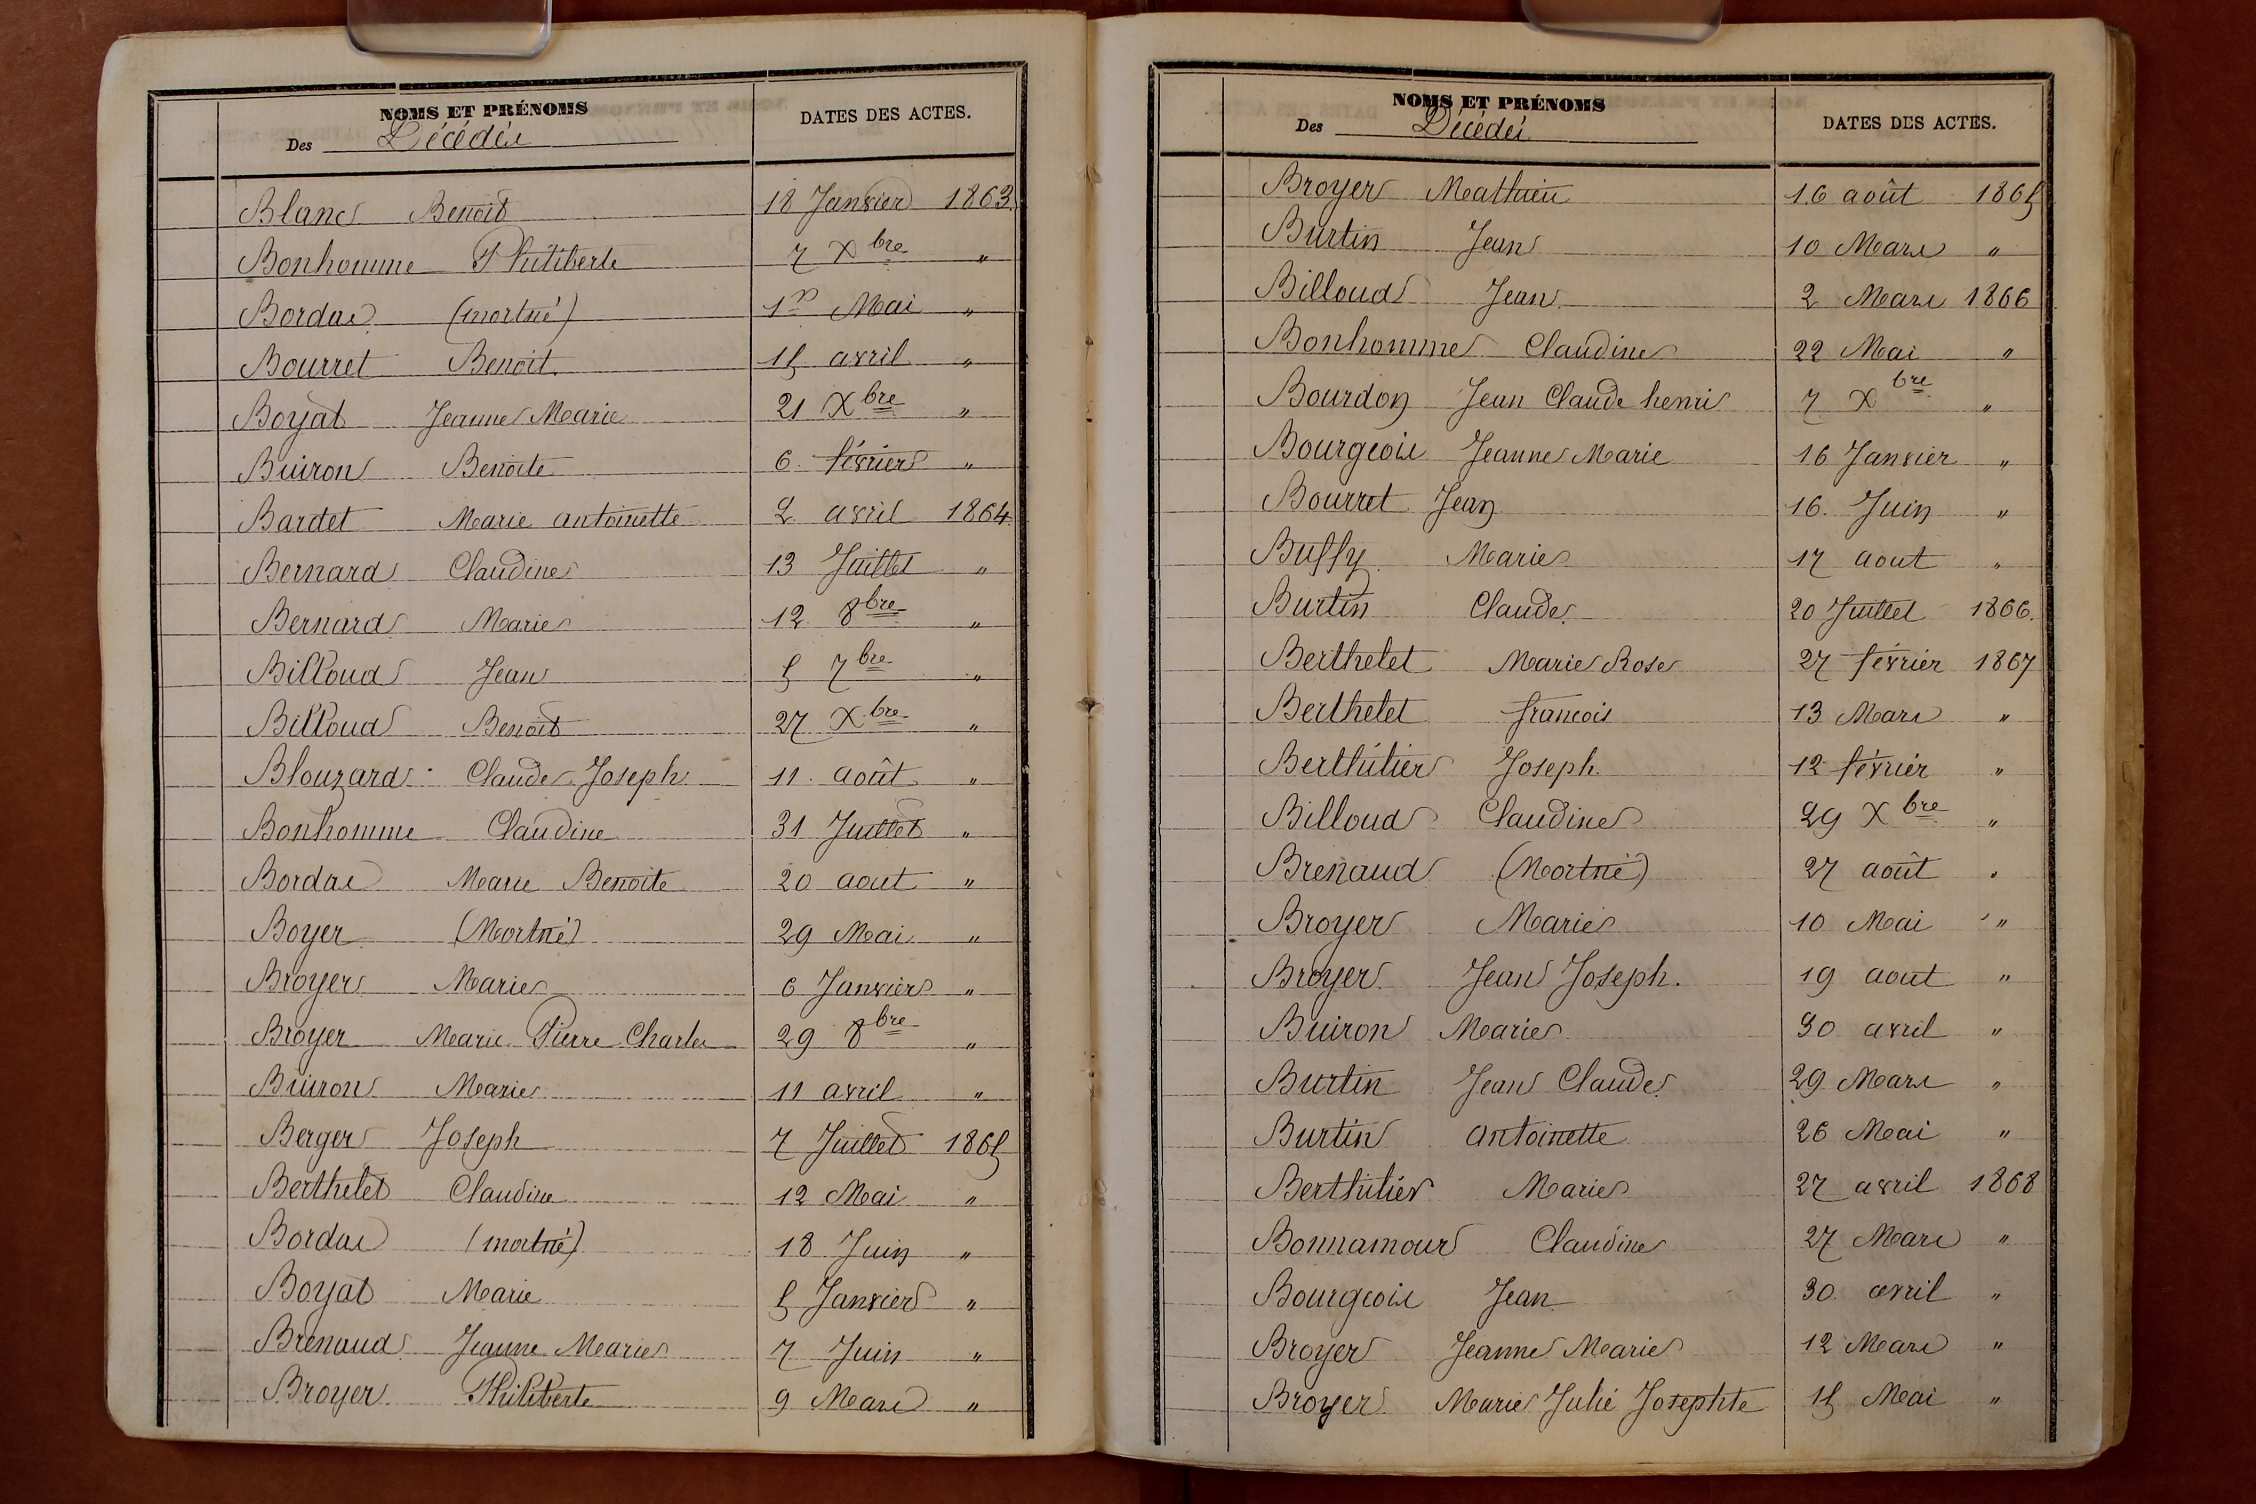 NOMS ET PRÉNOMS
Des Décédés
DATES DES ACTES.
Blanc Benoit 18 Janvier 1863
Bonhomme Philiberte 7 Xbre "
Bordas (mortné) 1er Mai "
Bourret Benoit 15 avril "
Boyat Jeanne Marie 21 Xbre "
Buiron Benoite 6 février "
Bardet Marie antoinette 2 avril 1864
Bernard Claudine 13 Juillet "
Bernard Marie 12 8bre "
Billoud Jean 5 7bre "
Billoud Benoit 27 Xbre "
Blouzard Claude Joseph 11 août "
Bonhomme Claudine 31 Juillet "
Bordas Marie Benoite 20 aout "
Boyer (Mortné) 29 Mai "
Broyer Marie 6 Janvier "
Broyer Marie Pierre Charles 29 8bre "
Buiron Marie 11 avril "
Berger Joseph 7 Juillet 1865
Berthelet Claudine 12 Mai "
Bordas (mortné) 18 Juin "
Boyat Marie 5 Janvier "
Brenaud Jeanne Marie 7 Juin "
Broyer Philiberte 9 Mars "
NOMS ET PRÉNOMS
Des Décédés
DATES DES ACTES.
Broyer Mathieu 16 août 1865
Burtin Jean 10 Mars "
Billoud Jean 2 Mars 1866
Bonhomme Claudine 22 Mai "
Bourdon Jean Claude henri 7 Xbre "
Bourgeois Jeanne Marie 16 Janvier "
Bourret Jean 16 Juin "
Buffy Marie 17 aout "
Burtin Claude 20 Juillet 1866.
Berthelet Marie Rose 27 février 1867
Berthelet francois 13 Mars "
Berthilier Joseph 12 février "
Billoud Claudine 29 Xbre "
Brenaud (Mortné) 27 août "
Broyer Marie 10 Mai "
Broyer Jean Joseph. 19 aout "
Buiron Marie 30 avril "
Burtin Jean Claude 29 Mars "
Burtin antoinette 26 Mai "
Berthilier Marie 27 avril 1868
Bonnamour Claudine 27 Mars "
Bourgeois Jean 30 avril "
Broyer Jeanne Marie 12 Mars "
Broyer Marie Julie Josephte 15 Mai "